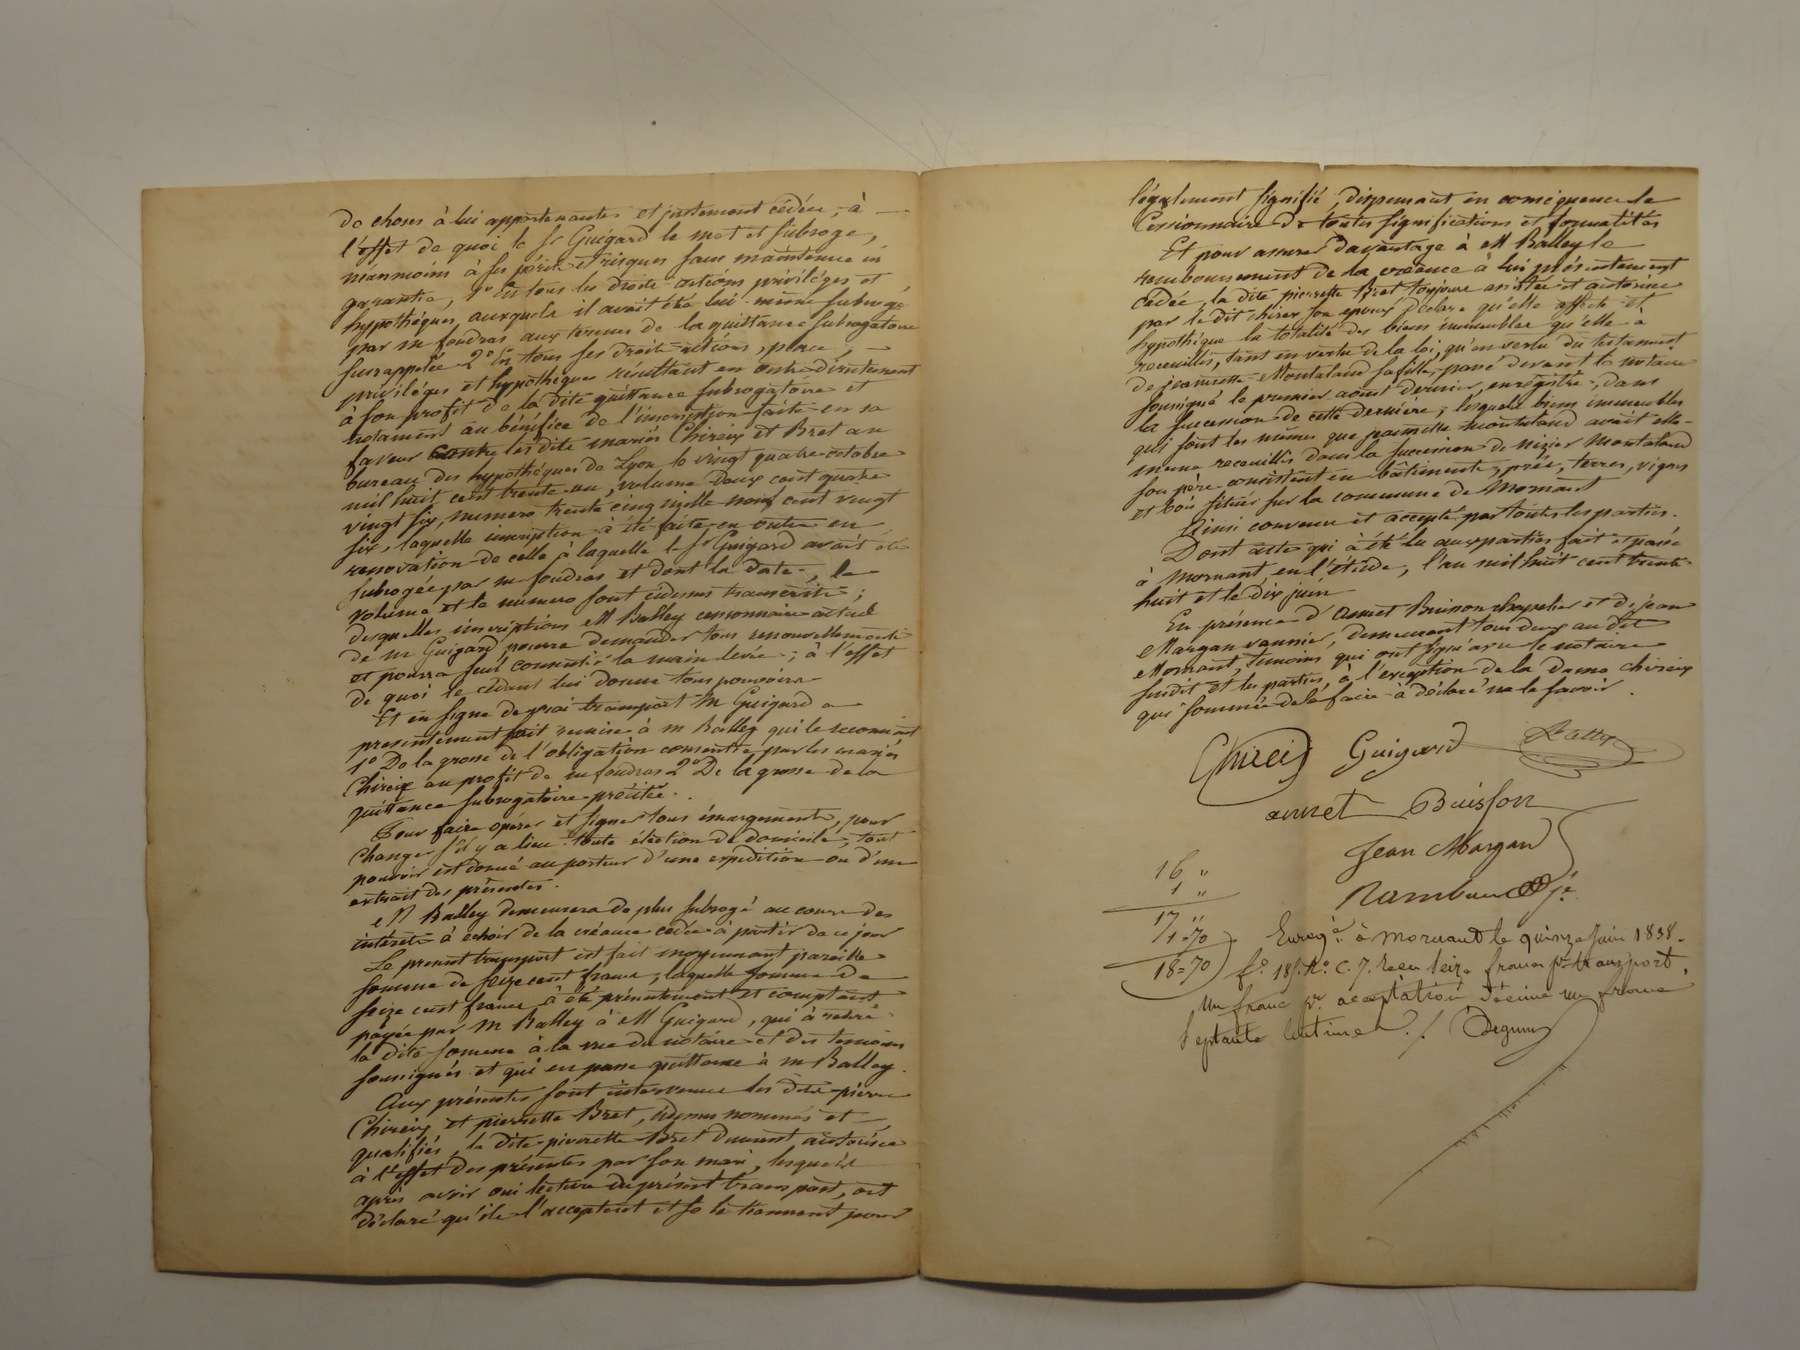 de choses à lui appartenantes et justement cédées, à
l'effet de quoi le sr Guigard le met et subroge,
néanmoins à ses périls et risques sans maintenue ni
garantie, 1º En tous les droits actions priviléges et
hypothéques auxquels il avait été lui-même subrogé
par mr foudras aux termes de la quittance subrogatoire
susrappelée 2º En tous ses droits actions, place,
priviléges et hypothéques résultant en outre directement
à son profit de la dite quittance subrogatoire et
notament au bénéfice de l'inscription faite en sa
faveur contre les dits mariés Chiréix et Bret au
bureau des hypothéques de Lyon le vingt quatre octobre
mil huit cent trente un, volume deux cent quatre
vingt six, numero trente cinq mille neuf cent vingt
six, laquelle inscription à été faite en outre en
renovation de celle à laquelle le sr Guigard avait été
subrogé par mr foudras et dont la date, le
volume et le numero sont cidessus transcrits;
desquelles inscriptions M Balley cessionnaire actuel
de mr Guigard pourra demander tous renouvellements
et pourra seul consentir la main levée; à l'effet
de quoi le cédant lui donne tous pouvoirs
Et en signe de vrai transport Mr Guigard a
presentement fait remise à mr Balley qui le reconnait
1º De la grosse de l'obligation consentie par les mariés
Chireix au profit de mr foudras 2º De la grosse de la
quittance subrogatoire précitée.
Pour faire opérer et signer tous émargements, pour
changer s'il y a lieu toute élection de domicile, tout
pouvoir est donné au porteur d'une expedition ou d'un
extrait des présentes.
M Balley demeurera de plus subrogé au cours des
intérêts à échoir de la créance cédée à partir de ce jour
Le present transport est fait moyennant pareille
somme de seize cent francs, laquelle somme de
seize cent francs à été présentement et comptant
payée par Mr Balley à M Guigard, qui à retiré
la dite somme à la vue du notaire et des temoins
soussignés et qui en passe quittance à mr Balley.
Aux présentes sont intervenus les dits pierre
Chireix et pierrette Bret, cidessus nommés et
qualifiés, la dite pierrette Bret dument autorisée
à l'effet des présentes par son mari, lesquels
après avoir oui lecture du présent transport, ont
déclaré qu'ils l'acceptent et se le tiennent pour
légalement signifié, dispensant en conséquence le
Cessionnaire de toutes significations et formalités
Et pour assurer davantage à M Balley le
remboursement de la créance à lui présentement
cédée, la dite pierrette Bret toujours assistée et autorisée
par le dit chireix son époux déclare qu'elle affecte et
hypothéque la totalité des biens immeubles qu'elle à
recueillis, tant en vertu de la loi, qu'en vertu du testament
de jeannette Montaland sa fille, passé devant le notaire
soussigné le premier aout dernier, enregistré, dans
la succession de cette dernière, lesquels biens immeubles
qui sont les mêmes que jeannette Montaland avait elle-
meme recueillis dans la succession de nizier Montaland
son père consistent en bâtiments, prés, terres, vignes
et bois situés sur la commune de Mornant
Ainsi convenu et accepté par toutes les parties.
Dont acte qui à été lu aux parties fait et passé
à Mornant en l'étude, l'an mil huit cent trente
huit et le dix juin
En présence d'annet Buisson chapelier et de jean
Margan vannier, demeurant tous deux au dit
Mornant, temoins qui ont signé avec le notaire
susdit et les parties, à l'exception de la Dame Chireix
qui sommée de le faire à déclaré ne le savoir.
Chireix Guigard Balley
annet Buisson
Jean Margan
16 "
1 "
17 "
1-70
18=70
Enregé. à Mornant le quinze Juin 1838.
fº 185 Rº. C. 7. Reçu seize francs pr transport,
un franc pr acceptation décime un franc
septante centimes ./.